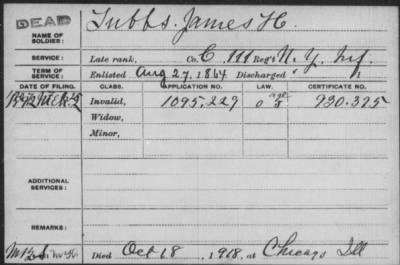 DEAD
Tubbs, James H.
NAME OF SOLDIER:
SERVICE: Late rank, Co. C, 111 Reg't N. Y. Inf.
TERM OF SERVICE: Enlisted Aug 27, 1864 Discharged , 1
DATE OF FILING. CLASS. APPLICATION NO. LAW. CERTIFICATE NO.
Invalid, 1095,227 930.395
Widow,
Minor,
ADDITIONAL SERVICES:
REMARKS:
Died Oct 18, 1918, at Chicago Ill